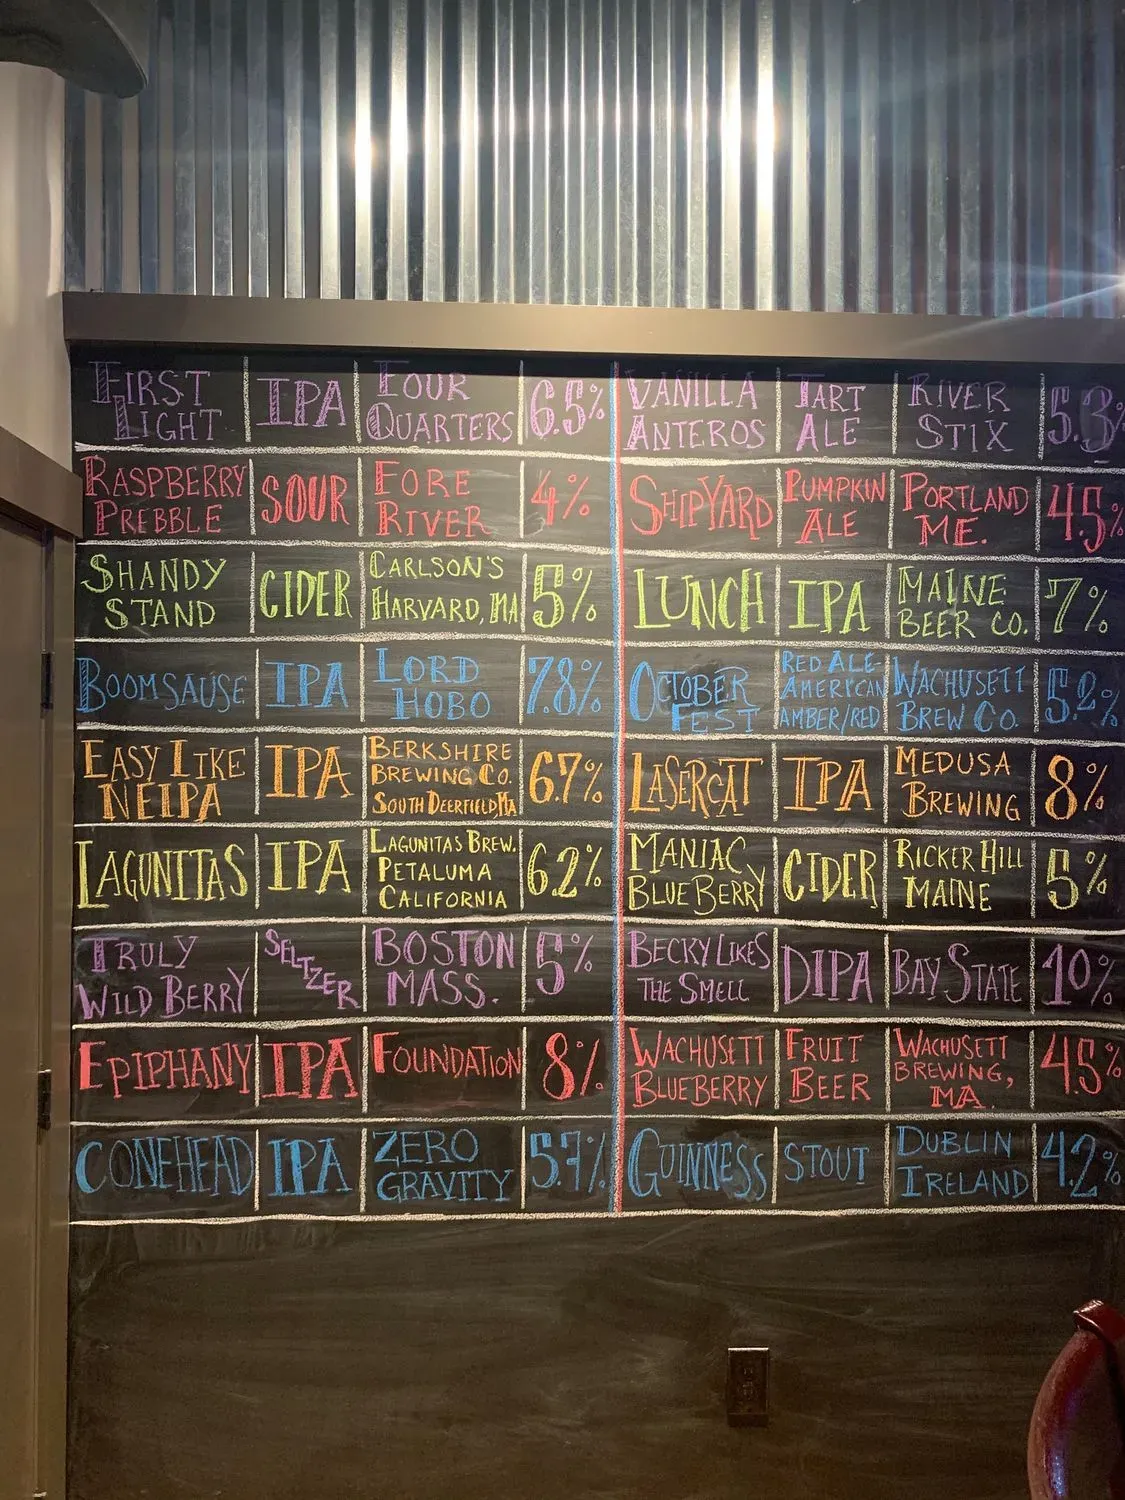 FIRST LIGHT IPA FOUR QUARTERS 6.5%
RASPBERRY PREBBLE SOUR FORE RIVER 4%
SHANDY STAND CIDER CARLSON'S HARVARD, MA 5%
BOOMSAUSE IPA LORD HOBO 7.8%
EASY LIKE NEIPA IPA BERKSHIRE BREWING CO. SOUTH DEERFIELD, MA 6.7%
LAGUNITAS IPA LAGUNITAS BREW. PETALUMA CALIFORNIA 6.2%
TRULY WILD BERRY SELTZER BOSTON MASS. 5%
EPIPHANY IPA FOUNDATION 8%
CONEHEAD IPA ZERO GRAVITY 5.7%
VANILLA ANTEROS TART ALE RIVER STIX 5.3%
SHIPYARD PUMPKIN ALE PORTLAND ME. 4.5%
LUNCH IPA MAINE BEER CO. 7%
OCTOBER FEST RED ALE- AMERICAN AMBER/RED WACHUSETT BREW CO. 5.2%
LASERCAT IPA MEDUSA BREWING 8%
MANIAC BLUEBERRY CIDER RICKER HILL MAINE 5%
BECKY LIKES THE SMELL DIPA BAY STATE 10%
WACHUSETT BLUEBERRY FRUIT BEER WACHUSETT BREWING, MA. 4.5%
GUINNESS STOUT DUBLIN IRELAND 4.2%